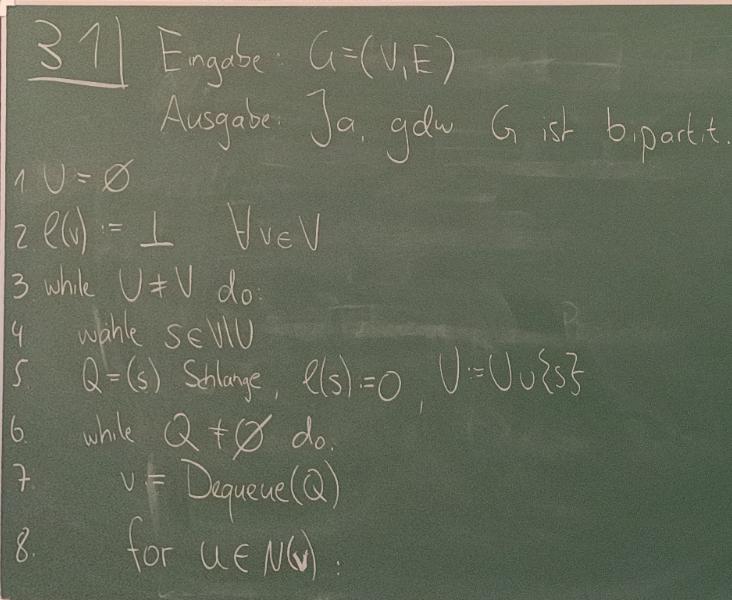 31 Eingabe: G=(V,E)
Ausgabe: Ja, gdw G ist bipartit.
1 U = ∅
2 l(v) := ⊥ ∀v∈V
3 while U≠V do:
4 wähle s∈V\U
5. Q=(s) Schlange, l(s):=0, U:=U∪{s}
6. while Q≠∅ do:
7. v = Dequeue(Q)
8. for u∈N(v):